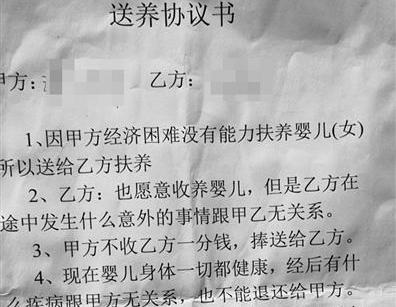 送养协议书
甲方: 乙方:
1、因甲方经济困难没有能力扶养婴儿(女)
所以送给乙方扶养
2、乙方:也愿意收养婴儿,但是乙方在
途中发生什么意外的事情跟甲乙无关系。
3、甲方不收乙方一分钱,捧送给乙方。
4、现在婴儿身体一切都健康,经后有什
么疾病跟甲方无关系,也不能退还给甲方。